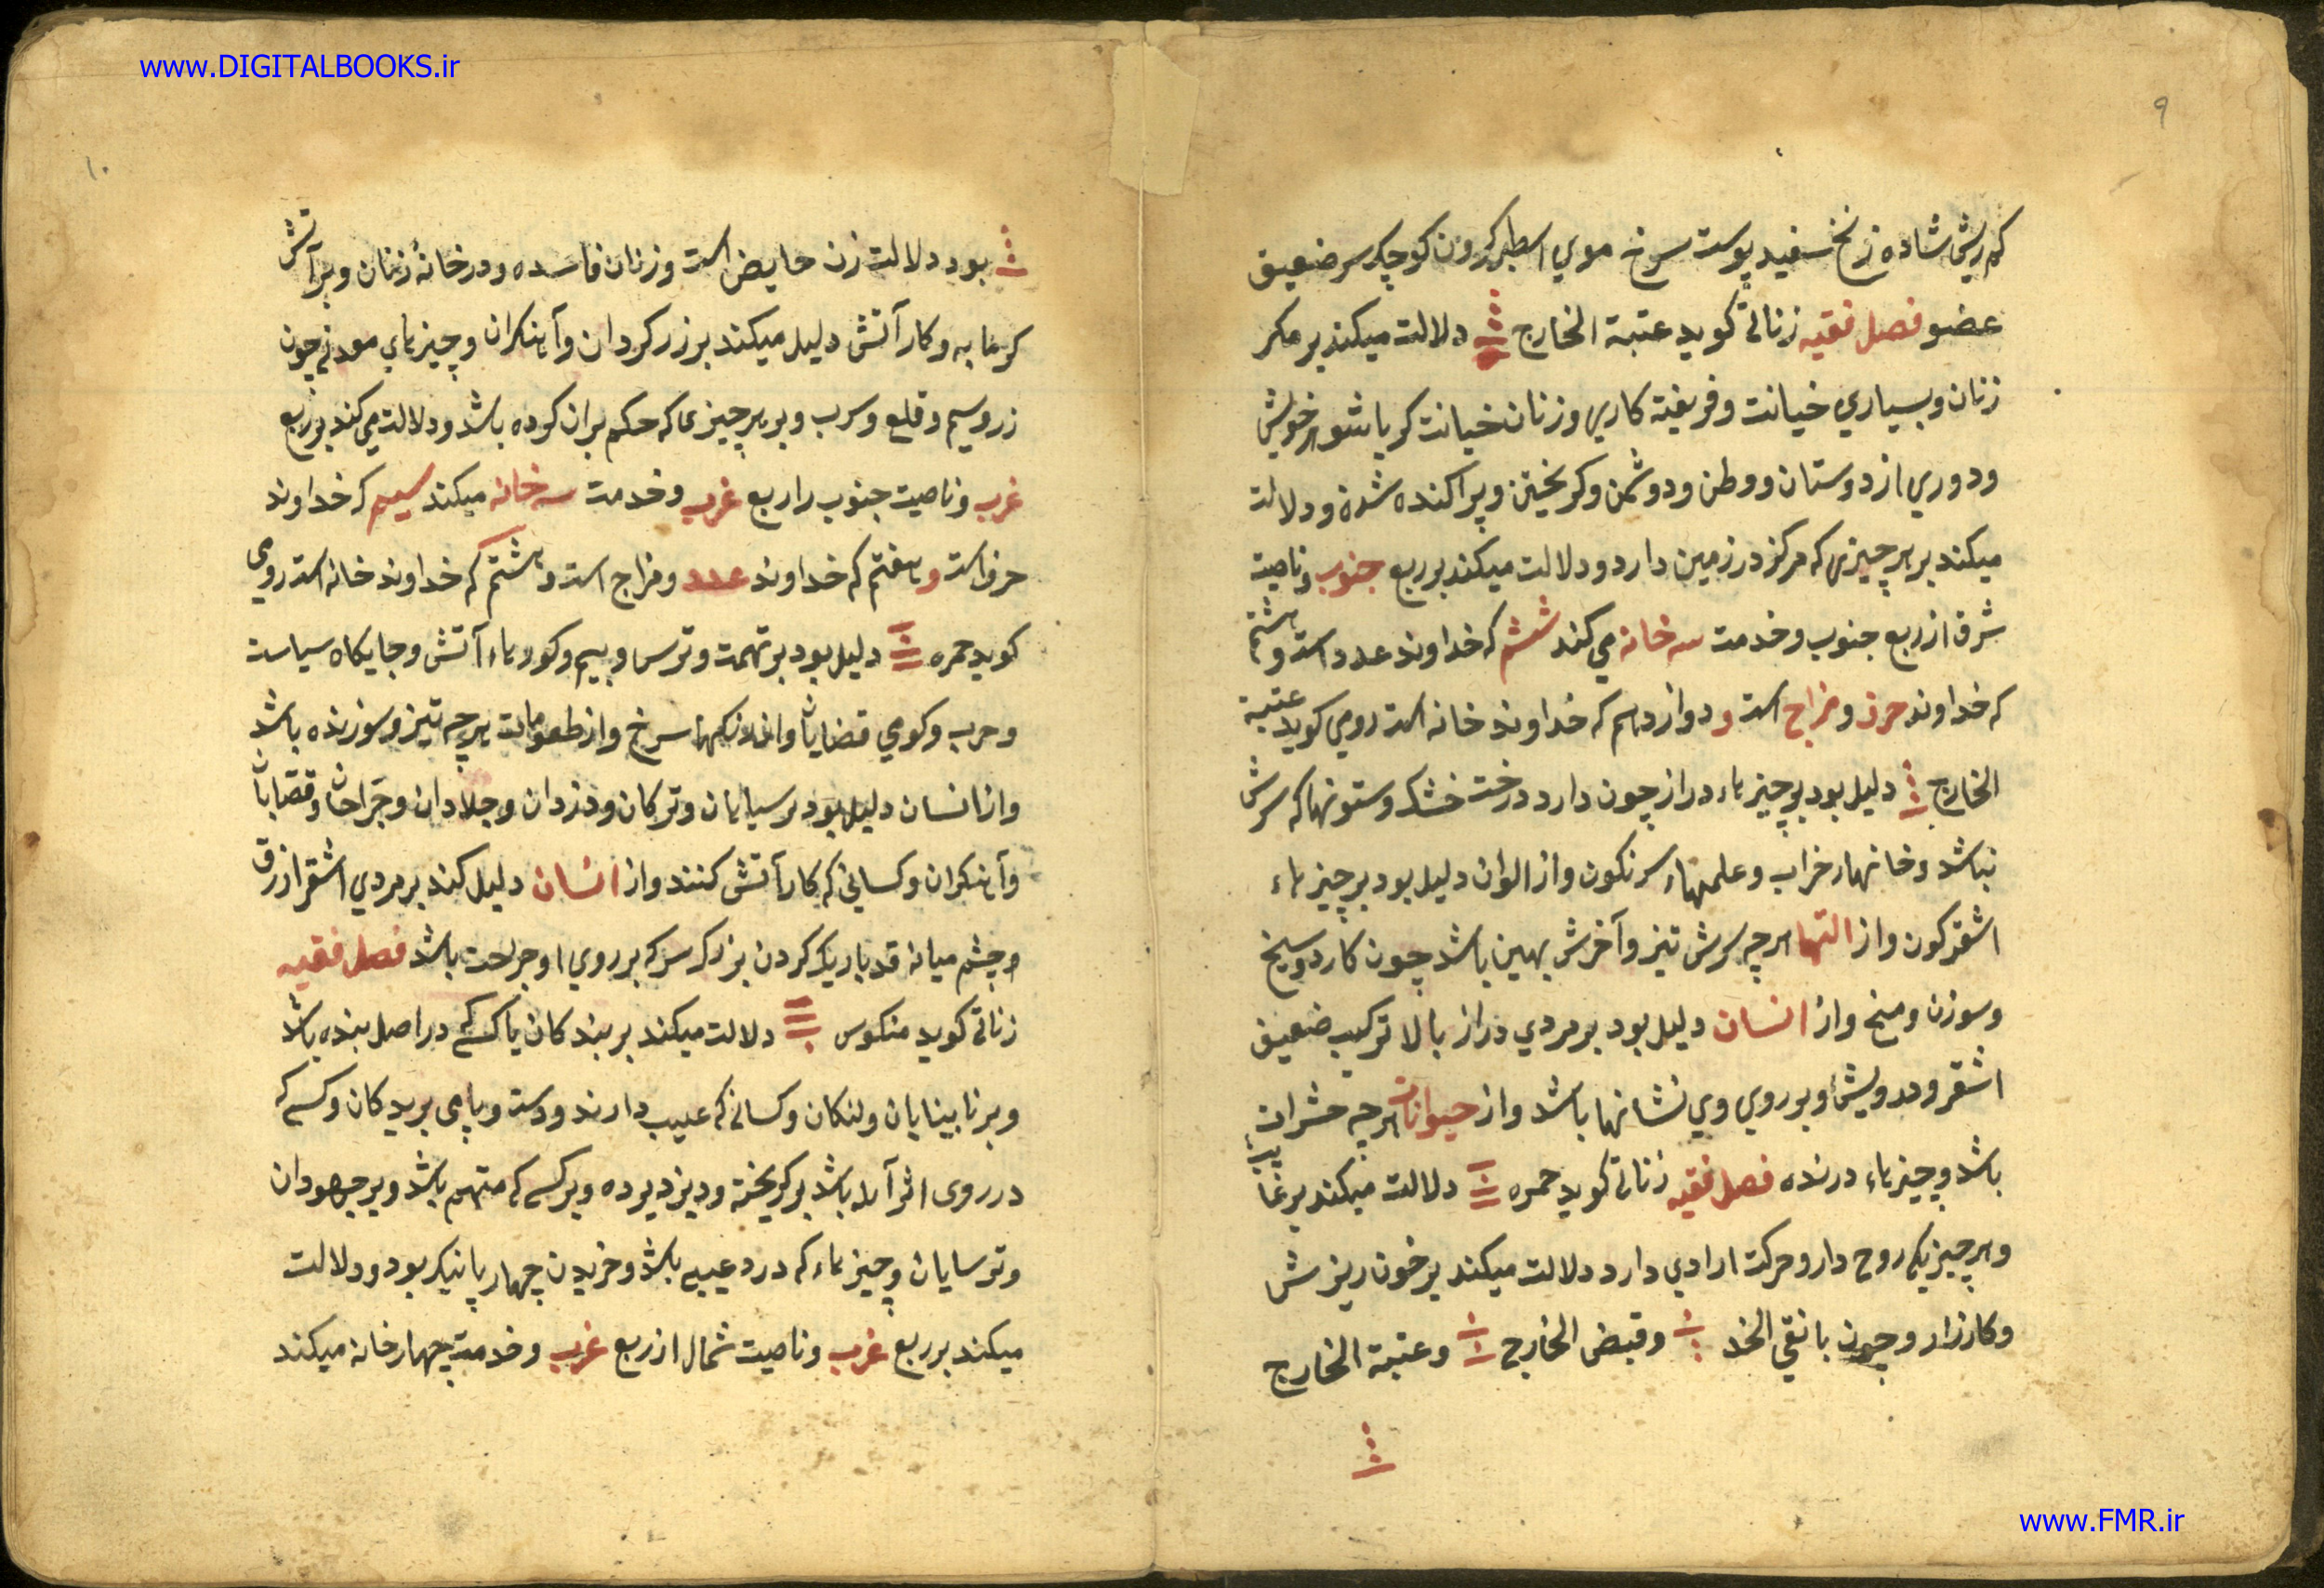 www.DIGITALBOOKS.ir
۹
کم ریش شاده زنخ سفید پوست سرخ موي اسطبر کردن کوچک سر ضعیف
عضو فصل فقیه زناتی کوید عتبة الخارج دلالت میکند بر مکر
زنان و بسیاري خیانت و فریفته کاري و زنان خیانت کر با شوهر خویش
و دوري از دوستان و وطن و دوشمن و کریختن و پراکنده شدن و دلالت
میکند بر هر چیزی که مرکز در زمین دارد و دلالت میکند بر ربع جنوب و ناصیت
شرق از ربع جنوب و خدمت سه خانه مي کند ششم که خداوند عدد است و هشتم
که خداوند حرف و مزاج است و دوازدهم که خداوند خانه است رومي کوید عتبة
الخارج دلیل بود بر چیزهاء دراز چون دارد درخت خشک و ستونها که سرش
نباشد و خانهاء خراب و علمهاء سرنکون و از الوان دلیل بود بر چیزهاء
اشقر کون و از التها هر چه سرش تیز و آخرش پهین باشد چون کارد و سیخ
و سوزن و میخ و از انسان دلیل بود بر مردي دراز بالا ترکیب ضعیف
اشقر و بر روي وي نشانها باشد و از حیوانات هر چه حشرات
باشد و چیزهاء درنده فصل فقیه زناتی کوید حمره دلالت میکند بر
و هر چیزیکه روح دار و حرکت ارادي دارد دلالت میکند بر خون ریزش
و کارزار و چون با نقي الخد و قبض الخارج و عتبة الخارج
۱۰
بود دلالت زن حایض است و زنان فاسده و در خانهٔ زنان و بر آتش
کرمابه و کار آتش دلیل میکند بر زرکردان و آهنکران و چیزهاي معدنی چون
زر و سیم و قلع و سرب و بر هر چیزی که حکم بران کرده باشد و دلالت می کند بر ربع
غرب و ناصیت جنوب را ربع غرب و خدمت سه خانه میکند سیم که خداوند
حرف است و هفتم که خداوند عدد و مزاج است و هشتم که خداوند خانه است رومی
کوید حمره دلیل بود بر تهمت و ترس و بیم و کورهاء آتش و جایکاه سیاست
و حرب و کوي قصابان و از رنکها سرخ و از طعومات هر چه تیز و سوزنده باشد
و از انسان دلیل بود بر سپاهیان و ترکان و دزدان و جلادان و جراحان و قصابان
و آهنکران و کسانی که کار آتش کنند و از انسان دلیل کند بر مردي اشقر ازرق
چشم میانه قد باریک کردن بزرک سر که بر روي او جراحت باشد فصل فقیه
زناتی کوید منکوس دلالت میکند بر بندکان یا کسی که در اصل بنده باشد
و بر نابینایان و لنکان و کسانی که عیب دارند و دست و پای بریدکان و کسی که
در روی اثر آبله باشد بر کریخته و دیزدیرده و بر کسی که متهم باشد و بر جهودان
و ترسایان و چیزهاء که در د عیبی باشد و خریدن چهار پا نیک بود و دلالت
میکند بر ربع غرب و ناصیت شمال از ربع غرب و خدمت چهار خانه میکند
www.FMR.ir